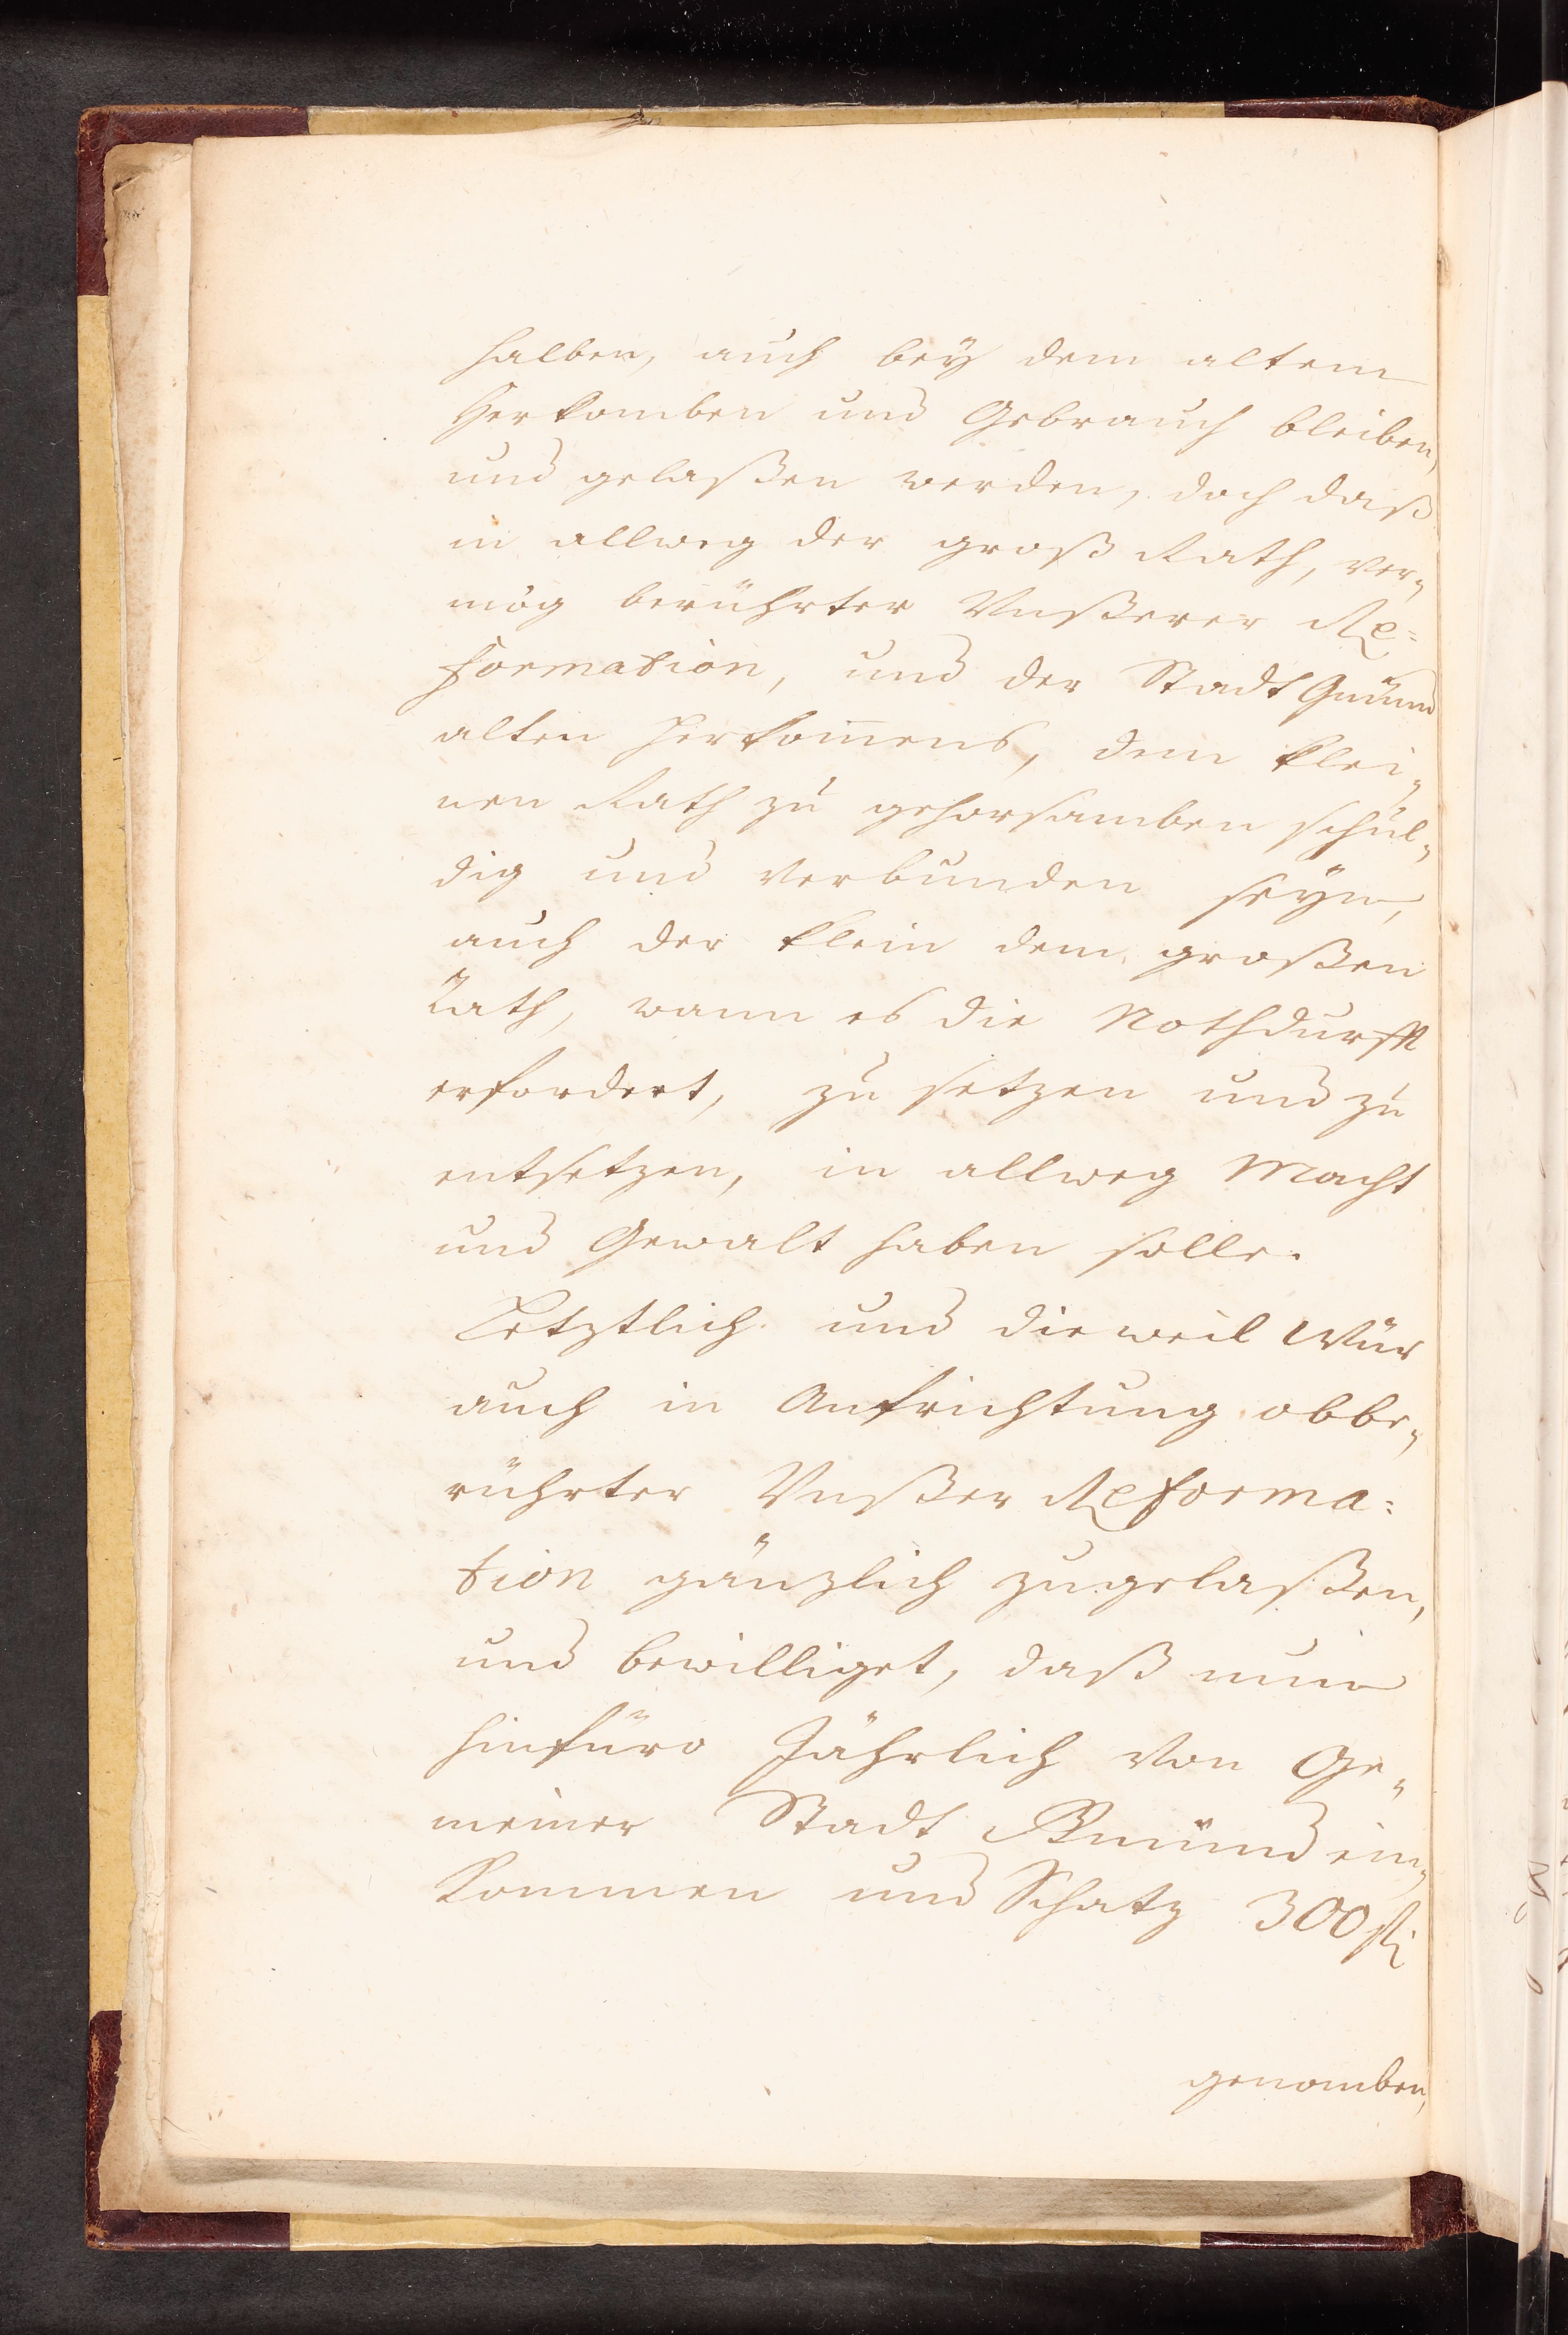 halben, auch bey dem altem
Herkomben und Gebrauch bleiben,
und gelaßen werden, doch daß
in allweg der groß Rath, ver„
mög berührter Unßerer Re=
formation, und der Stadt Gmünd
alten herkom̄ens, dem klei„
nen Rath zu gehorsamben schul„
dig und verbunden seyn,
auch der klein dem großen
Rath, wann es die Nothdurfft
erfordert, zu setzen und zu
entsetzen, in allweg Macht
und Gewalt haben solle.
Letztlich und dieweil Wür
auch in Aufrichtung obbe„
rührter Unßer Reforma=
tion gänzlich zugelaßen,
und bewilliget, daß nun
hinfüro Jährlich von Ge„
meiner Stadt Gmünd ein„
kommen und Schatz 300 fl
genomben,